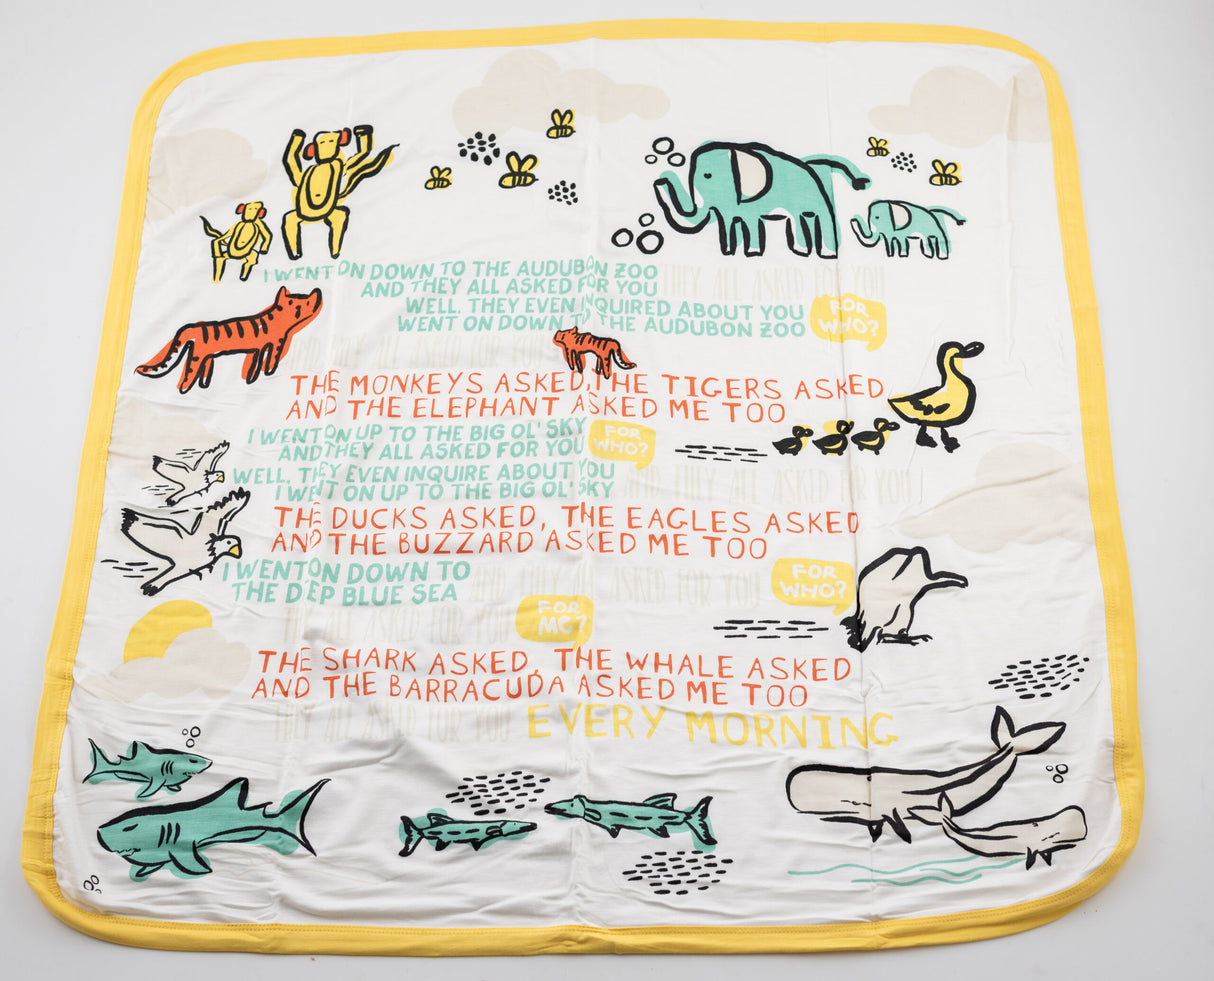 I WENT ON DOWN TO THE AUDUBON ZOO THEY ALL ASKED FOR YOU
AND THEY ALL ASKED FOR YOU
WELL, THEY EVEN INQUIRED ABOUT YOU FOR
WENT ON DOWN TO THE AUDUBON ZOO WHO?
ALL ASKED FOR YOU
THE MONKEYS ASKED, THE TIGERS ASKED
AND THE ELEPHANT ASKED ME TOO
I WENT ON UP TO THE BIG OL' SKY FOR
AND THEY ALL ASKED FOR YOU WHO?
WELL, THEY EVEN INQUIRE ABOUT YOU AND THEY ALL ASKED FOR YOU
I WENT ON UP TO THE BIG OL' SKY
THE DUCKS ASKED, THE EAGLES ASKED
AND THE BUZZARD ASKED ME TOO
I WENT ON DOWN TO AND THEY ALL ASKED FOR YOU FOR
THE DEEP BLUE SEA WHO?
THEY ALL ASKED FOR YOU FOR
ME?
THE SHARK ASKED, THE WHALE ASKED
AND THE BARRACUDA ASKED ME TOO
THEY ALL ASKED FOR YOU EVERY MORNING